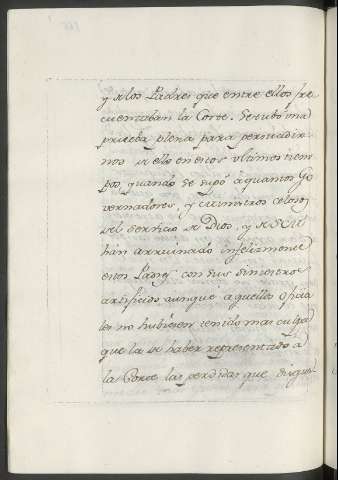 y á los Padres que entre ellos fre
cuentaban la Corte. Se tubó una
prueba plena para persuadir-
nos á ello en estos ultimos tiem
pos, quando se supó á quantos Go
vernadores, y Ministros celosos
del servicio de Dios, y de S.M.
hán arruinado infelizmente
estos Padres con sus siniestros
artificios aunque aquellos oficia
les no hubiesen tenido mas culpa
que la de haber representado á
la Corte las perdidas que disgus-